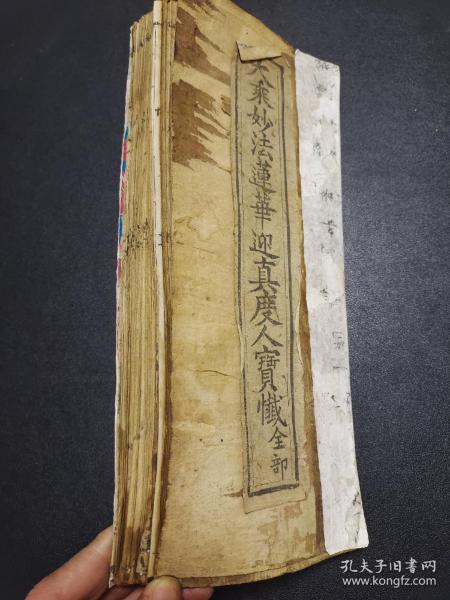 大乘妙法蓮華迎真度人寶懺全部
孔夫子旧书网
www.kongfz.com